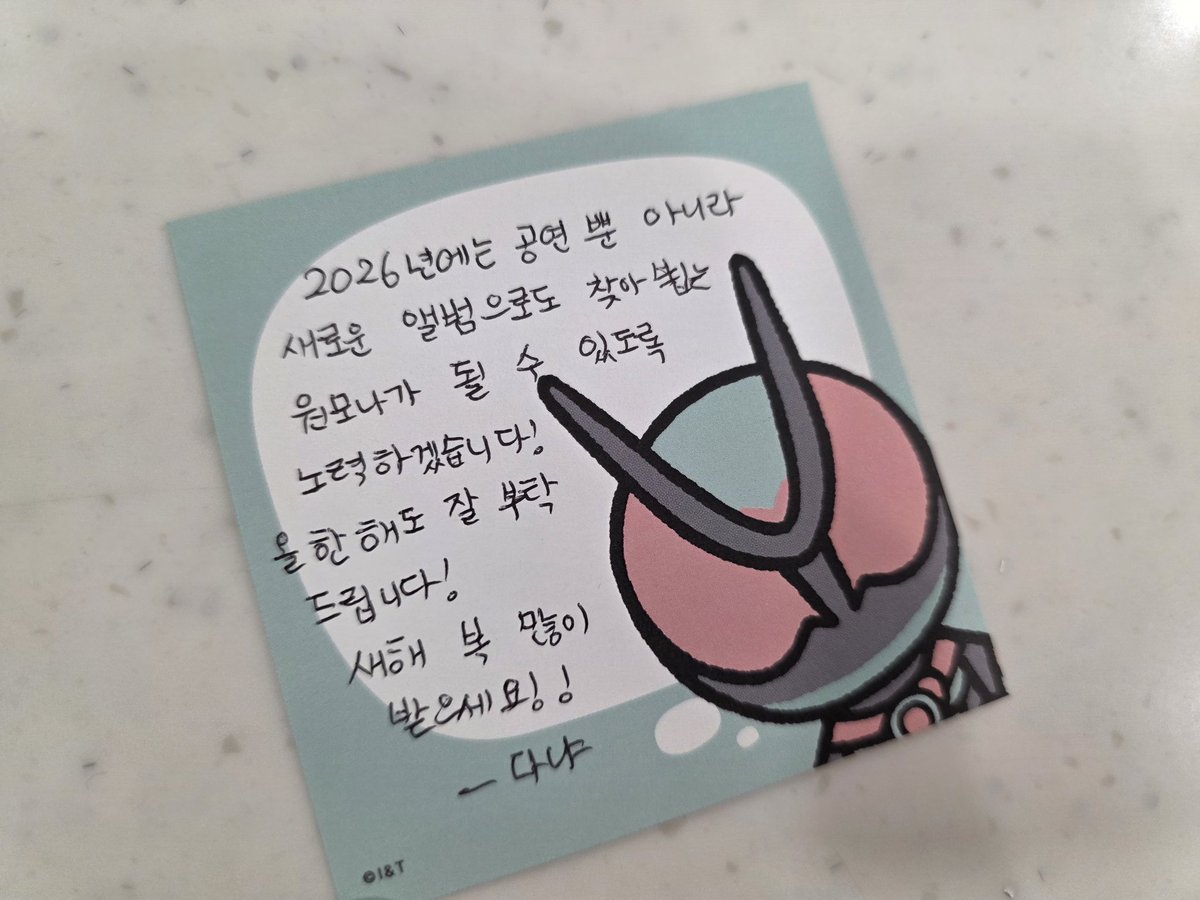 2026년에는 공연 뿐 아니라
새로운 앨범으로도 찾아뵙는
워모나가 될 수 있도록
노력하겠습니다!
올 한해도 잘 부탁
드립니다!
새해 복 많이
받으세요! !
- 다냐
©I&T